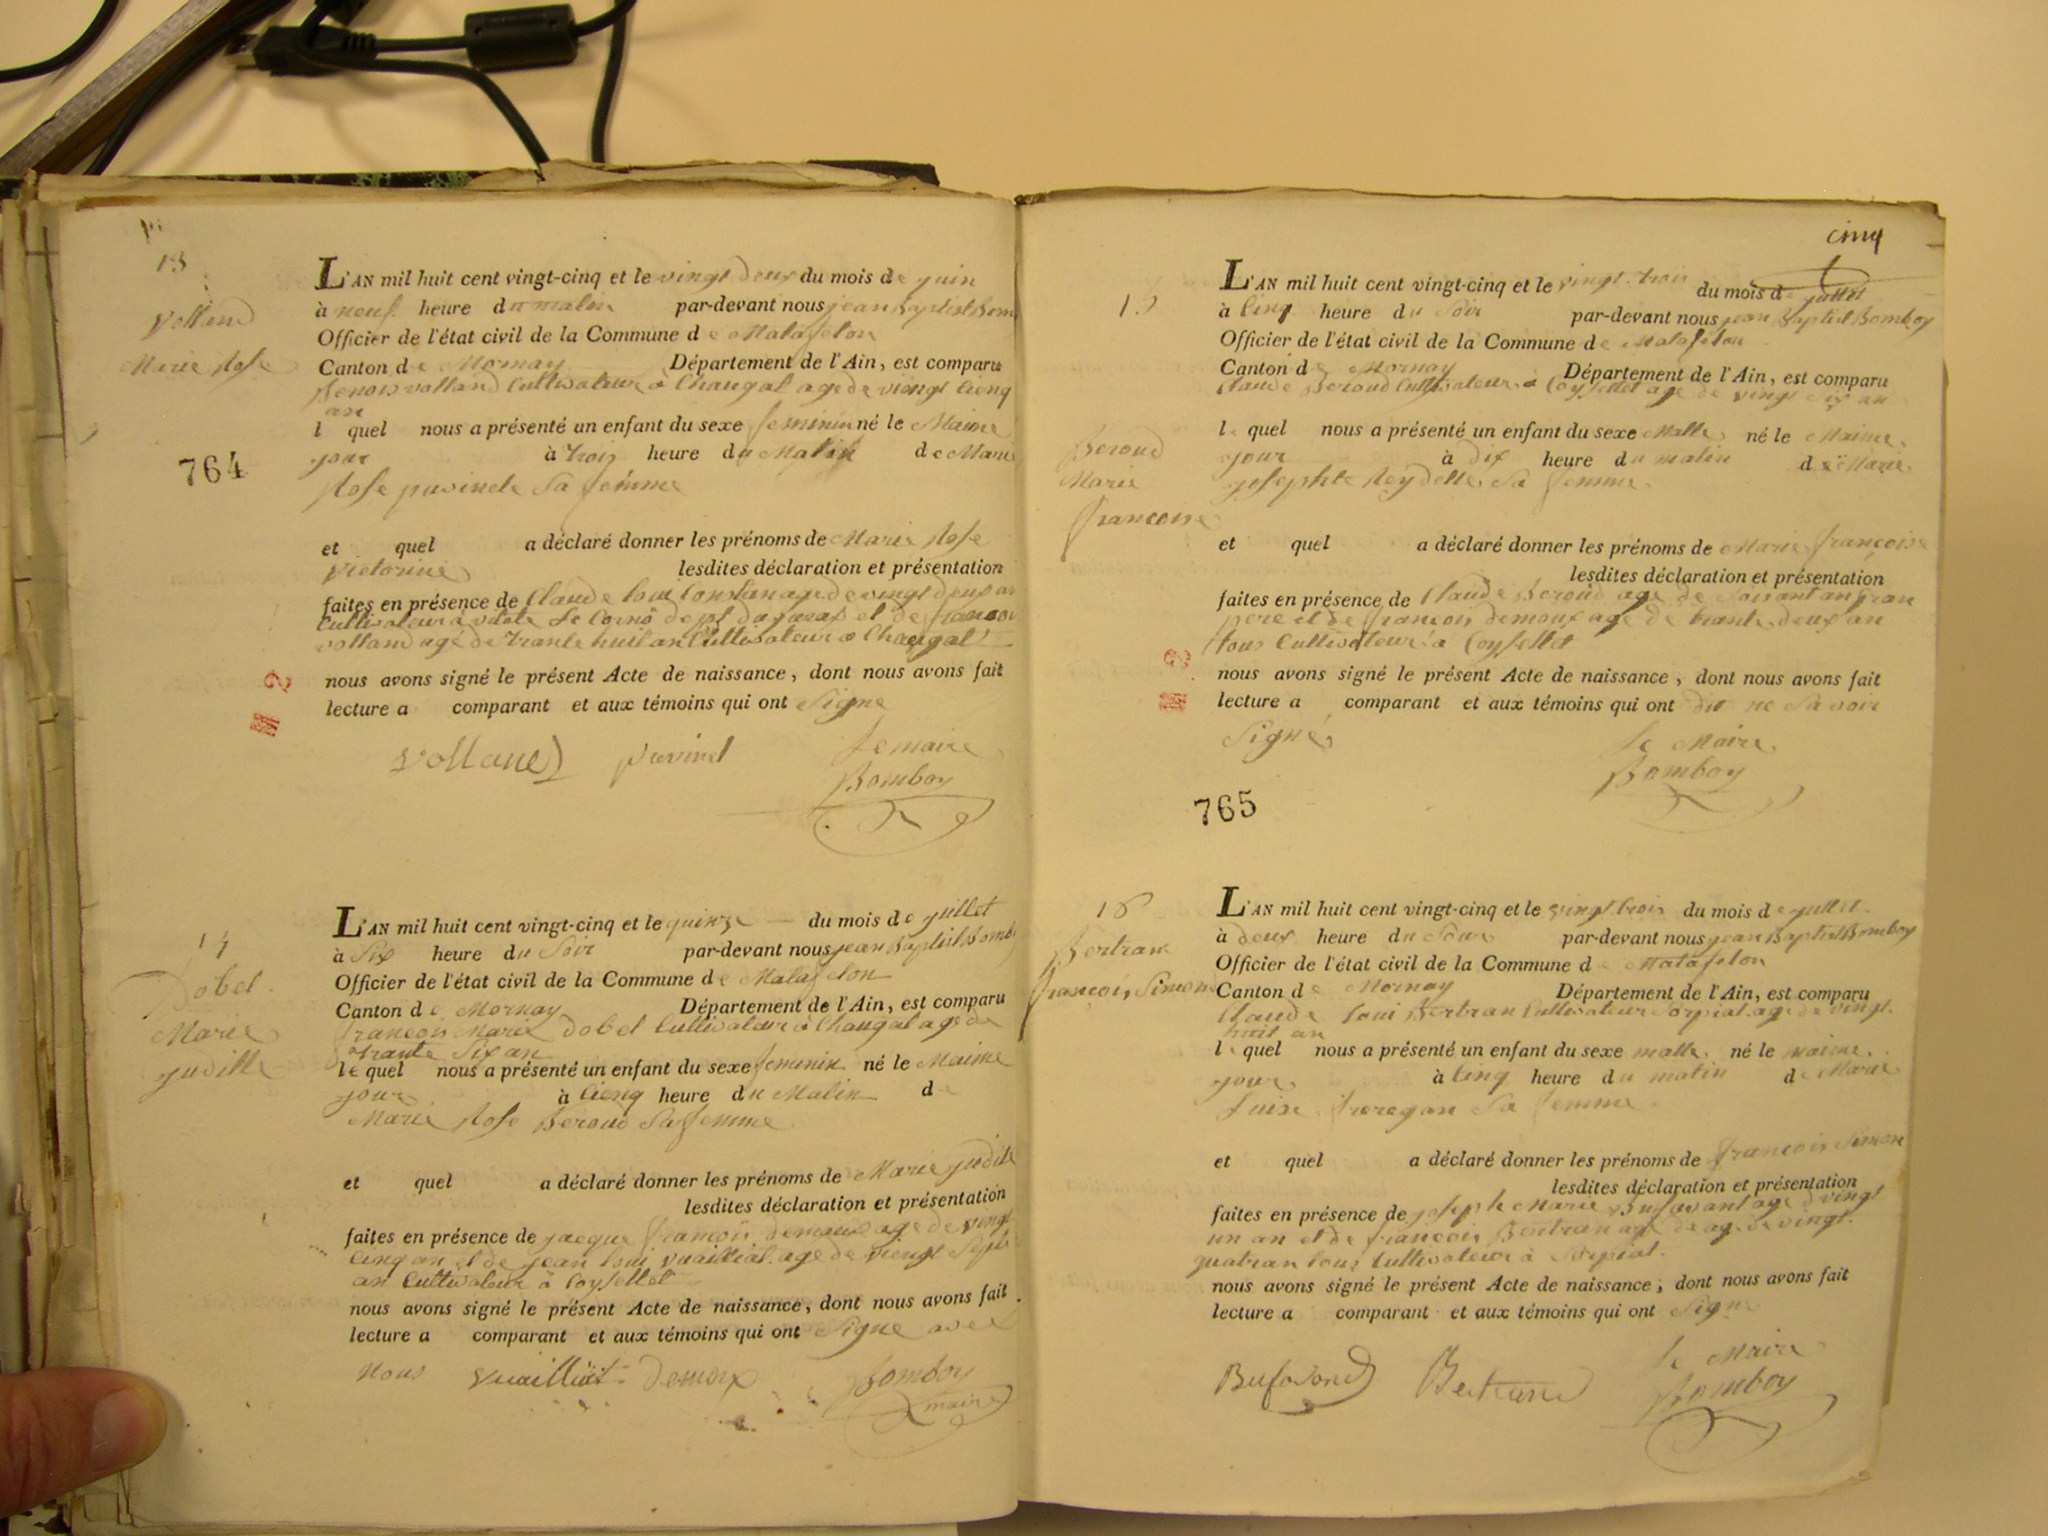 13
Volland
Marie Rose
764
L'AN mil huit cent vingt-cinq et le vingt deux du mois de juin
à neuf heure du matin par-devant nous jean Baptist Bom
Officier de l'état civil de la Commune de Matafelon
Canton de Mornay Département de l'Ain, est comparu
Benois volland Cultivateur à Chaugat age de viengt cienq
an
l quel nous a présenté un enfant du sexe feminin né le Maime
jour à trois heure du Matin de Marie
Rose puvinel Sa femme
et quel a déclaré donner les prénoms de Marie Rose
victorine lesdites déclaration et présentation
faites en présence de Claude loui Constan age de vingt deux an
Cultivateur à et de francoi
volland age de trante huit an Cultivateur a Chaugat
nous avons signé le présent Acte de naissance, dont nous avons fait
lecture a comparant et aux témoins qui ont Signe
Volland puvinel le maire
Bomboy
14
Dobel
Marie
judille
L'AN mil huit cent vingt-cinq et le quinze du mois de juillet
à Six heure du Soir par-devant nous jean Baptist Bomb
Officier de l'état civil de la Commune de Matafelon
Canton de Mornay Département de l'Ain, est comparu
francois Marie Dobel Cultivateur à Chaugat age de
trante Six an
le quel nous a présenté un enfant du sexe feminin né le Maime
jour à Cienq heure du Matin de
Marie Rose Beroud Sa femme
et quel a déclaré donner les prénoms de Marie judille
lesdites déclaration et présentation
faites en présence de jacque francois demoux age de vingt
cinq an et de jean loui vuailliat age de viengt Sept
an Cultivateur à Coyselet
nous avons signé le présent Acte de naissance, dont nous avons fait
lecture a comparant et aux témoins qui ont Signe avec
Nous Vuailliat Demoux Bomboy
maire
cinq
15
Beroud
Marie
francoise
L'AN mil huit cent vingt-cinq et le vingt trois du mois de juillet
à Cinq heure du Soir par-devant nous jean Baptist Bomboy
Officier de l'état civil de la Commune de Matafelon
Canton de Mornay Département de l'Ain, est comparu
Claude Beroud Cultivateur à Coysellet age de vingt Six an
le quel nous a présenté un enfant du sexe Malle né le Maime
jour à dix heure du matin de Marie
josephte Reydelle Sa femme
et quel a déclaré donner les prénoms de Marie françoise
lesdites déclaration et présentation
faites en présence de Claude Beroud age de Soisant an gran
pere et de francois demoux age de trante deux an
tous Cultivateur à Coysellet
nous avons signé le présent Acte de naissance, dont nous avons fait
lecture a comparant et aux témoins qui ont dit ne Savoir
Signé le Maire
Bomboy
765
16
Bertran
francois Simon
L'AN mil huit cent vingt-cinq et le vingt trois du mois de juillet
à deux heure du Soir par-devant nous jean Baptist Bomboy
Officier de l'état civil de la Commune de Matafelon
Canton de Mornay Département de l'Ain, est comparu
Claude loui Bertran Cultivateur Sorpiat age de vingt
huit an
le quel nous a présenté un enfant du sexe malle né le maime
jour à Cinq heure du matin de Marie
Luise Sa femme
et quel a déclaré donner les prénoms de francois Simon
lesdites déclaration et présentation
faites en présence de joseph Marie Bufavant age d vingt
un an et de francois Bertran age de age de vingt
quatran tous Cultivateur à Sorpiat
nous avons signé le présent Acte de naissance, dont nous avons fait
lecture a comparant et aux témoins qui ont Signe
Bufavand Bertrand le Maire
Bomboy